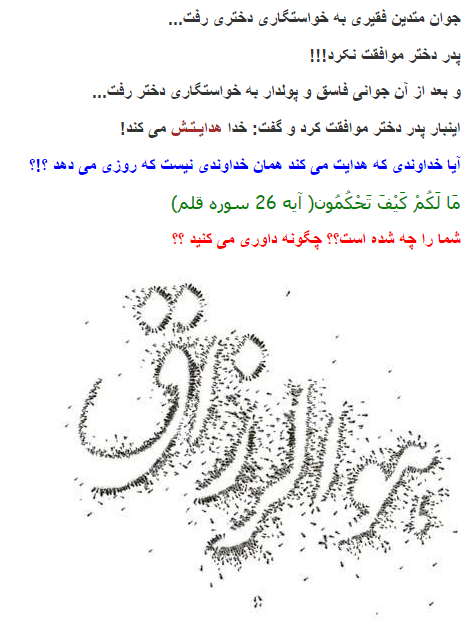 جوان متدین فقیری به خواستگاری دختری رفت...
پدر دختر موافقت نکرد!!!
و بعد از آن جوانی فاسق و پولدار به خواستگاری دختر رفت...
اینبار پدر دختر موافقت کرد و گفت: خدا هدایتش می کند!
آیا خداوندی که هدایت می کند همان خداوندی نیست که روزی می دهد ؟!؟
مَا لَكُمْ كَيْفَ تَحْكُمُونَ( آیه 26 سوره قلم)
شما را چه شده است؟؟ چگونه داوری می کنید ؟؟
هو الرزاق